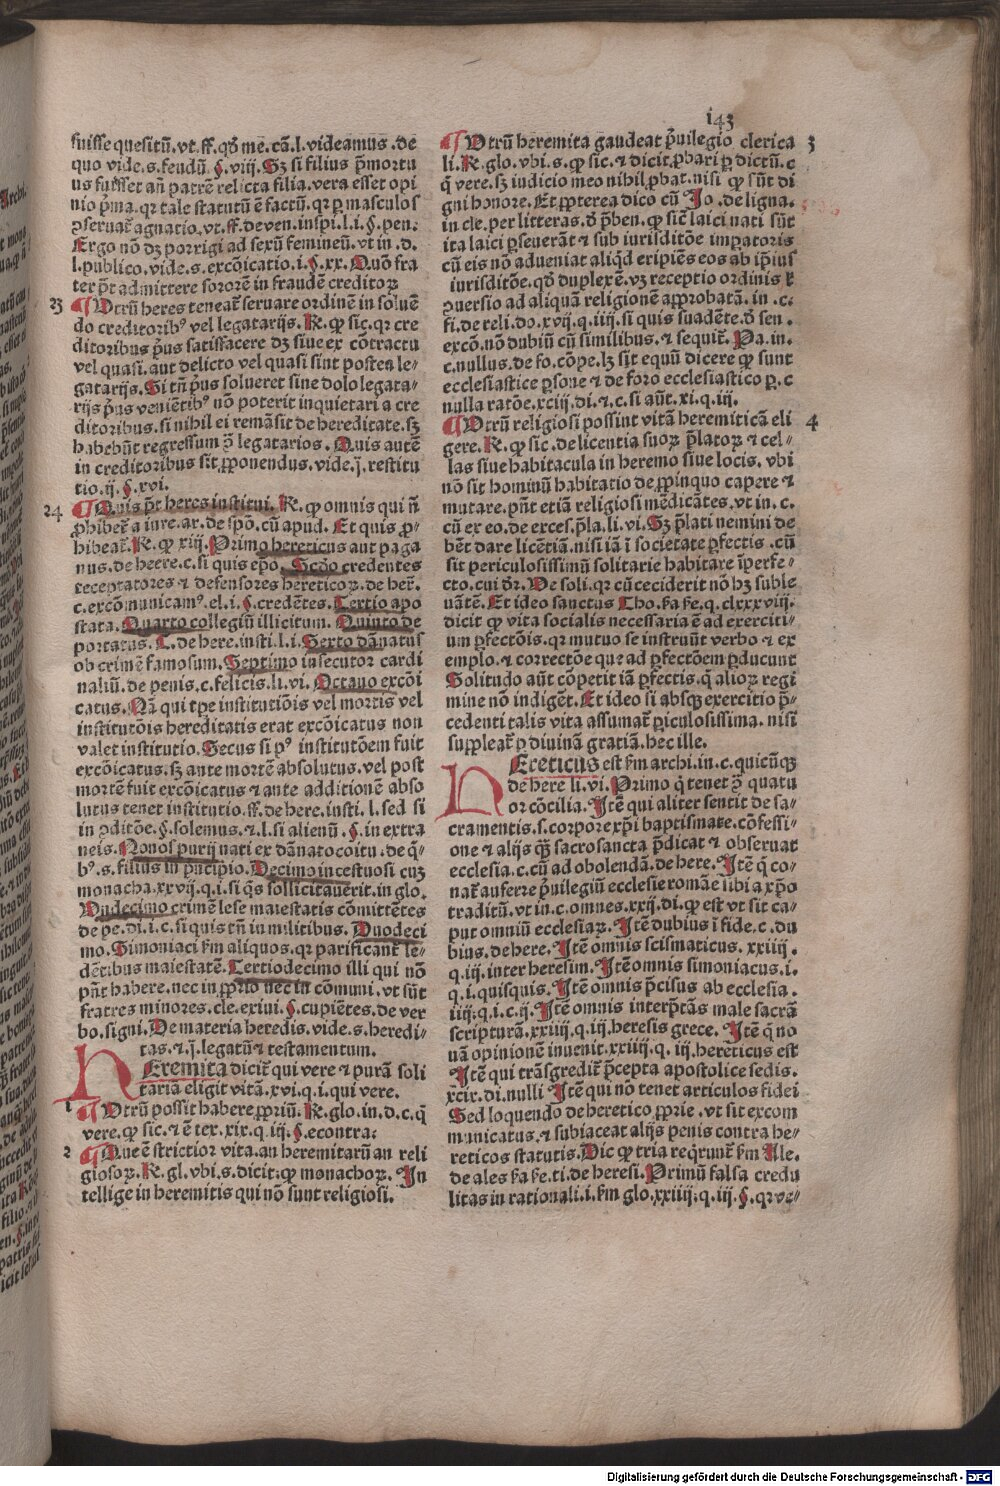 143
fuisse quesitū. vt. ff. qđ me. cā. l. videamus. de
quo vide. s. feudū. §. viij. Sꝫ si filius p̄mortu
us fuisset añ patrē relicta filia. vera esset opi
nio p̄ma. qꝛ tale statutū ē factū. qꝛ ꝑ masculos
ꝯseruat̄ agnatio. vt. ff. de ven. inspi. l. i. §. pen.
Ergo nō dꝫ porrigi ad sexū femineū. vt in. d.
l. publico. vide. s. excōicatio. i. §. xx. Quō fra
ter p̄t admittere sororē in fraudē creditoꝝ
23 ¶ Vtrū heres teneat̄ seruare ordinē in soluē
do creditoribꝰ vel legatarijs. R. ꝙ sic. qꝛ cre
ditoribus p̄us satisfacere dꝫ siue ex cōtractu
vel quasi. aut delicto vel quasi sint postea le-
gatarijs. Si tñ p̄us solueret sine dolo legata-
rijs p̄us veniētibꝰ nō poterit inquietari a cre
ditoribus. si nihil ei remāsit de hereditate. sꝫ
habebūt regressum ꝯ̄ legatarios. Quis autē
in creditoribus sit ꝓponendus. vide. j. restitu
tio. ij. §. xvi.
24 ¶ Quis p̄t heres institui. R. ꝙ omnis qui ñ
ꝓhibet̄ a iure. ar. de spō. cū apud. Et quis ꝓ-
hibeat̄. R. ꝙ xiij. Primo hereticus aut paga
nus. de heere. c. si quis epō. Scđo credentes
receptatores ⁊ defensores hereticoꝝ. de her̄.
c. excōmunicamꝰ. el. i. §. credētes. Tertio apo
stata. Quarto collegiū illicitum. Quinto de
portatus. C. de here. insti. l. i. Sexto dānatus
ob crimē famosum. Septimo insecutor cardi
naliū. de penis. c. felicis. li. vi. Octauo excōi
catus. Nā qui tꝑe institutiōis vel mortis vel
institutōis hereditatis erat excōicatus non
valet institutio. Secus si pꝰ institutōem fuit
excōicatus. sꝫ ante mortē absolutus. vel post
mortē fuit excōicatus ⁊ ante additionē abso
lutus tenet institutio. ff. de here. insti. l. sed si
in ꝯditōe. §. solemus. ⁊. l. si alienū. §. in extra
neis. Nono spurij nati ex dānato coitu. de q̄-
bꝰ. s. filius in principio. Decimo incestuosi cuꝫ
monacha. xxvij. q. i. si q̄s sollicitauerit. in glo.
Vndecimo crimē lese maiestatis cōmittētes
de pe. di. i. c. si quis tñ in militibus. Duodeci
mo. Simoniaci ẜm aliquos. qꝛ parificant̄ le-
dētibus maiestatē. Tertiodecimo illi qui nō
pn̄t habere. nec in ꝓprio nec in cōmuni. vt sūt
fratres minores. cle. exiui. §. cupiētes. de ver
bo. signi. De materia heredis. vide. s. heredi-
tas. ⁊. j. legatū ⁊ testamentum.
HEremita dicit̄ qui vere ⁊ purā soli
tariā eligit vitā. xvi. q. i. qui vere.
1 ¶ Vtrū possit habere ꝓpriū. R. glo. in. d. c. q̄
vere. ꝙ sic. ⁊ ē tex. xix. q. iij. §. econtra.
2 ¶ Que ē strictior vita. an heremitarū an reli
giosoꝝ. R. gl. vbi. s. dicit. ꝙ monachoꝝ. In
tellige in heremitis qui nō sunt religiosi.
¶ Vtrū heremita gaudeat p̄uilegio clerica 3
li. R. glo. vbi. s. ꝙ sic. ⁊ dicit ꝓbari ꝑ dictū. c
q̄ vere. sꝫ iudicio meo nihil ꝓbat. nisi ꝙ sūt di
gni honore. Et ꝓpterea dico cū Jo. de ligna.
in cle. per litteras. đ p̄ben. ꝙ siē laici nati sūt
ita laici ꝑseuerāt ⁊ sub iurisditōe imꝑatoris
cū eis nō adueniat aliqđ eripiēs eos ab ip̄ius
iurisditōe. qđ duplex ē. vꝫ receptio ordinis ⁊
ꝯuersio ad aliquā religionē apꝓbatā. in. c.
fi. de reli. do. xvij. q. iiij. si quis suadēte. đ sen.
excō. nō dubiū cū similibus. ⁊ sequit̄. Pa. in.
c. nullus. de fo. cōpe. lꝫ sit equū dicere ꝙ sunt
ecclesiastice ꝑsone ⁊ de foro ecclesiastico ꝑ. c
nulla ratōe. xciij. di. ⁊. c. si aūt. xi. q. iij.
¶ Vtrū religiosi possint vitā heremiticā eli 4
gere. R. ꝙ sic. de licentia suoꝝ p̄latoꝝ ⁊ cel-
las siue habitacula in heremo siue locis. vbi
nō sit hominū habitatio de ꝓpinquo capere ⁊
mutare. pn̄t etiā religiosi mēdicātes. vt in. c.
cū ex eo. de exces. p̄la. li. vi. Sꝫ p̄lati nemini de
bēt dare licētiā. nisi iā ī societate ꝑfectis. cū
sit periculosissimū solitarie habitare īperfe-
cto. cui đr. Ve soli. qꝛ cū ceciderit nō hꝫ suble
uātē. Et ideo sanctus Tho. ẜa ẜe. q. clxxxviij.
dicit ꝙ vita socialis necessaria ē ad exerciti-
um ꝑfectōis. qꝛ mutuo se instruūt verbo ⁊ ex
emplo. ⁊ correctōe que ad ꝑfectōem ꝑducunt
Solitudo aūt cōpetit iā ꝑfectis. q̄ alioꝝ regi
mine nō indigēt. Et ideo si absqꝫ exercitio p̄-
cedenti talis vita assumat̄ ꝑiculosissima. nisi
suppleat̄ ꝑ diuinā gratiā. hec ille.
HEreticus est ẜm archi. in. c. quicūqꝫ
de here li. vi. Primo q̄ tenet ꝯ̄ quatu
or cōcilia. Itē qui aliter sentit de sa-
cramentis. s. corpore xp̄i baptismate. cōfessi-
one ⁊ alijs q̄ꝫ sacrosancta p̄dicat ⁊ obseruat
ecclesia. c. cū ad abolendā. de here. Itē q̄ co-
nat̄ auferre p̄uilegiū ecclesie romāe sibi a xp̄o
traditū. vt in. c. omnes. xxij. di. ꝙ est vt sit ca-
put omniū ecclesiaꝝ. Itē dubius ī fide. c. du
bius. de here. Itē omnis scismaticus. xxiiij.
q. iij. inter heresim. Itē omnis simoniacus. i.
q. i. quisquis. Itē omnis p̄cisus ab ecclesia.
iiij. q. i. c. ij. Itē omnis interp̄tās male sacrā
scripturā. xxiiij. q. iij. heresis grece. Itē q̄ no
uā opinionē inuenit. xxiiij. q. iij. hereticus est
Itē qui trāsgredit̄ p̄cepta apostolice sedis.
xcix. di. nulli Itē qui nō tenet articulos fidei
Sed loquendo de heretico ꝓprie. vt sit excom
municatus. ⁊ subiaceat alijs penis contra he-
reticos statutis. Dic ꝙ tria reqr̄unt̄ ẜm Ale.
de ales ẜa ẜe. ti. de heresi. Primū falsa credu
litas in rationali. i. ẜm glo. xxiiij. q. iij. §. qꝛ ve-
Digitalisierung gefördert durch die Deutsche Forschungsgemeinschaft - DFG